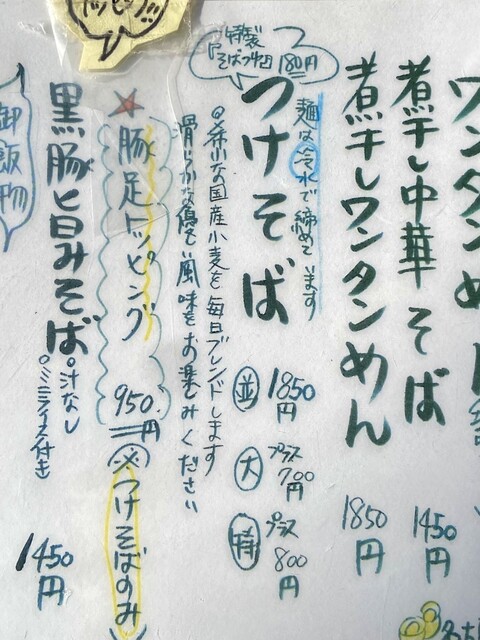 ワンタンめ
煮干し中華そば
1450円
煮干しワンタンめん
1850円
特製
180円
麺は冷水で締めています
つけそば
並 1850円
大 プラス 700円
特 プラス 800円
国産小麦を毎日ブレンドします
滑らかな 風味をお楽しみください
トッピング!!!
★豚足トッピング
950円
※つけそばのみ
黒豚旨みそば
汁なし
ミニライス付き
1450円
御飯物